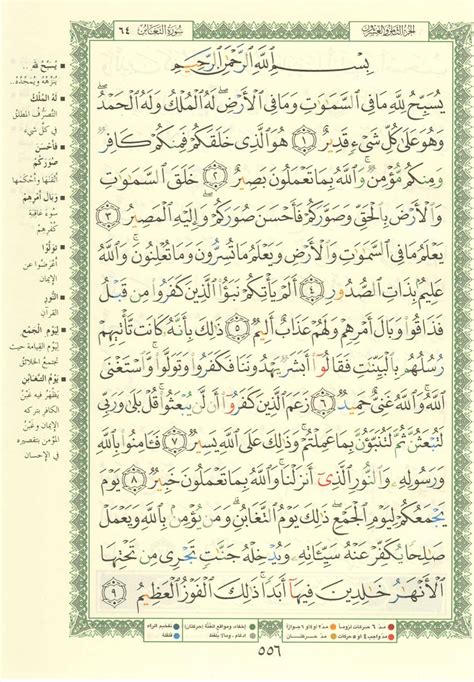 سُورَةُ التَّغَابُنِ ٦٤
الجزء الثامن والعشرون
بِسْمِ ٱللَّهِ ٱلرَّحْمَٰنِ ٱلرَّحِيمِ
يُسَبِّحُ لِلَّهِ مَا فِى ٱلسَّمَٰوَٰتِ وَمَا فِى ٱلْأَرْضِ ۖ لَهُ ٱلْمُلْكُ وَلَهُ ٱلْحَمْدُ ۖ
وَهُوَ عَلَىٰ كُلِّ شَىْءٍ قَدِيرٌ ١ هُوَ ٱلَّذِى خَلَقَكُمْ فَمِنكُمْ كَافِرٌ
وَمِنكُم مُّؤْمِنٌ ۚ وَٱللَّهُ بِمَا تَعْمَلُونَ بَصِيرٌ ٢ خَلَقَ ٱلسَّمَٰوَٰتِ
وَٱلْأَرْضَ بِٱلْحَقِّ وَصَوَّرَكُمْ فَأَحْسَنَ صُوَرَكُمْ ۖ وَإِلَيْهِ ٱلْمَصِيرُ ٣
يَعْلَمُ مَا فِى ٱلسَّمَٰوَٰتِ وَٱلْأَرْضِ وَيَعْلَمُ مَا تُسِرُّونَ وَمَا تُعْلِنُونَ ۚ وَٱللَّهُ
عَلِيمٌۢ بِذَاتِ ٱلصُّدُورِ ٤ أَلَمْ يَأْتِكُمْ نَبَؤُا۟ ٱلَّذِينَ كَفَرُوا۟ مِن قَبْلُ
فَذَاقُوا۟ وَبَالَ أَمْرِهِمْ وَلَهُمْ عَذَابٌ أَلِيمٌ ٥ ذَٰلِكَ بِأَنَّهُۥ كَانَت تَّأْتِيهِمْ
رُسُلُهُم بِٱلْبَيِّنَٰتِ فَقَالُوٓا۟ أَبَشَرٌ يَهْدُونَنَا فَكَفَرُوا۟ وَتَوَلَّوا۟ ۚ وَّٱسْتَغْنَى
ٱللَّهُ ۚ وَٱللَّهُ غَنِىٌّ حَمِيدٌ ٦ زَعَمَ ٱلَّذِينَ كَفَرُوٓا۟ أَن لَّن يُبْعَثُوا۟ ۚ قُلْ بَلَىٰ وَرَبِّى
لَتُبْعَثُنَّ ثُمَّ لَتُنَبَّؤُنَّ بِمَا عَمِلْتُمْ ۚ وَذَٰلِكَ عَلَى ٱللَّهِ يَسِيرٌ ٧ فَـَٔامِنُوا۟ بِٱللَّهِ
وَرَسُولِهِۦ وَٱلنُّورِ ٱلَّذِىٓ أَنزَلْنَا ۚ وَٱللَّهُ بِمَا تَعْمَلُونَ خَبِيرٌ ٨ يَوْمَ
يَجْمَعُكُمْ لِيَوْمِ ٱلْجَمْعِ ۖ ذَٰلِكَ يَوْمُ ٱلتَّغَابُنِ ۗ وَمَن يُؤْمِنۢ بِٱللَّهِ وَيَعْمَلْ
صَٰلِحًا يُكَفِّرْ عَنْهُ سَيِّـَٔاتِهِۦ وَيُدْخِلْهُ جَنَّٰتٍ تَجْرِى مِن تَحْتِهَا
ٱلْأَنْهَٰرُ خَٰلِدِينَ فِيهَآ أَبَدًا ۚ ذَٰلِكَ ٱلْفَوْزُ ٱلْعَظِيمُ ٩
يُسَبِّحُ لِلَّهِ ..
يُنَزِّهُهُ ويُمَجِّدُه..
لَهُ الْمُلْكُ
التصرُّف المطلق
في كلِّ شيء
فَأَحْسَنَ
صُوَرَكُمْ
أتقنها وأحكمها
وَبَالَ أَمْرِهِمْ
سُوءَ عاقبة
كُفْرِهِمْ
تَوَلَّوْا
أعْرَضوا عن
الإيمان
النُّورِ
القرآن
لِيَوْمِ الْجَمْعِ
ليوم القيامة حيث
تجتمع الخلائق
يَوْمُ التَّغَابُنِ
يَظْهَرُ فيه غَبْنُ
الكافر بتركه
الإيمان وغَبْنُ
المؤمن بتقصيره
في الإحسان
مدّ ٦ حركات لزوماً
مدّ ٢ أو ٤ أو ٦ جوازاً
إخفاء، ومواقع الغُنَّة (حركتان)
تفخيم الراء
مدّ واجب ٤ أو ٥ حركات
مدّ حركتان
إدغام، وما لا يُلفظ
قلقلة
٥٥٦